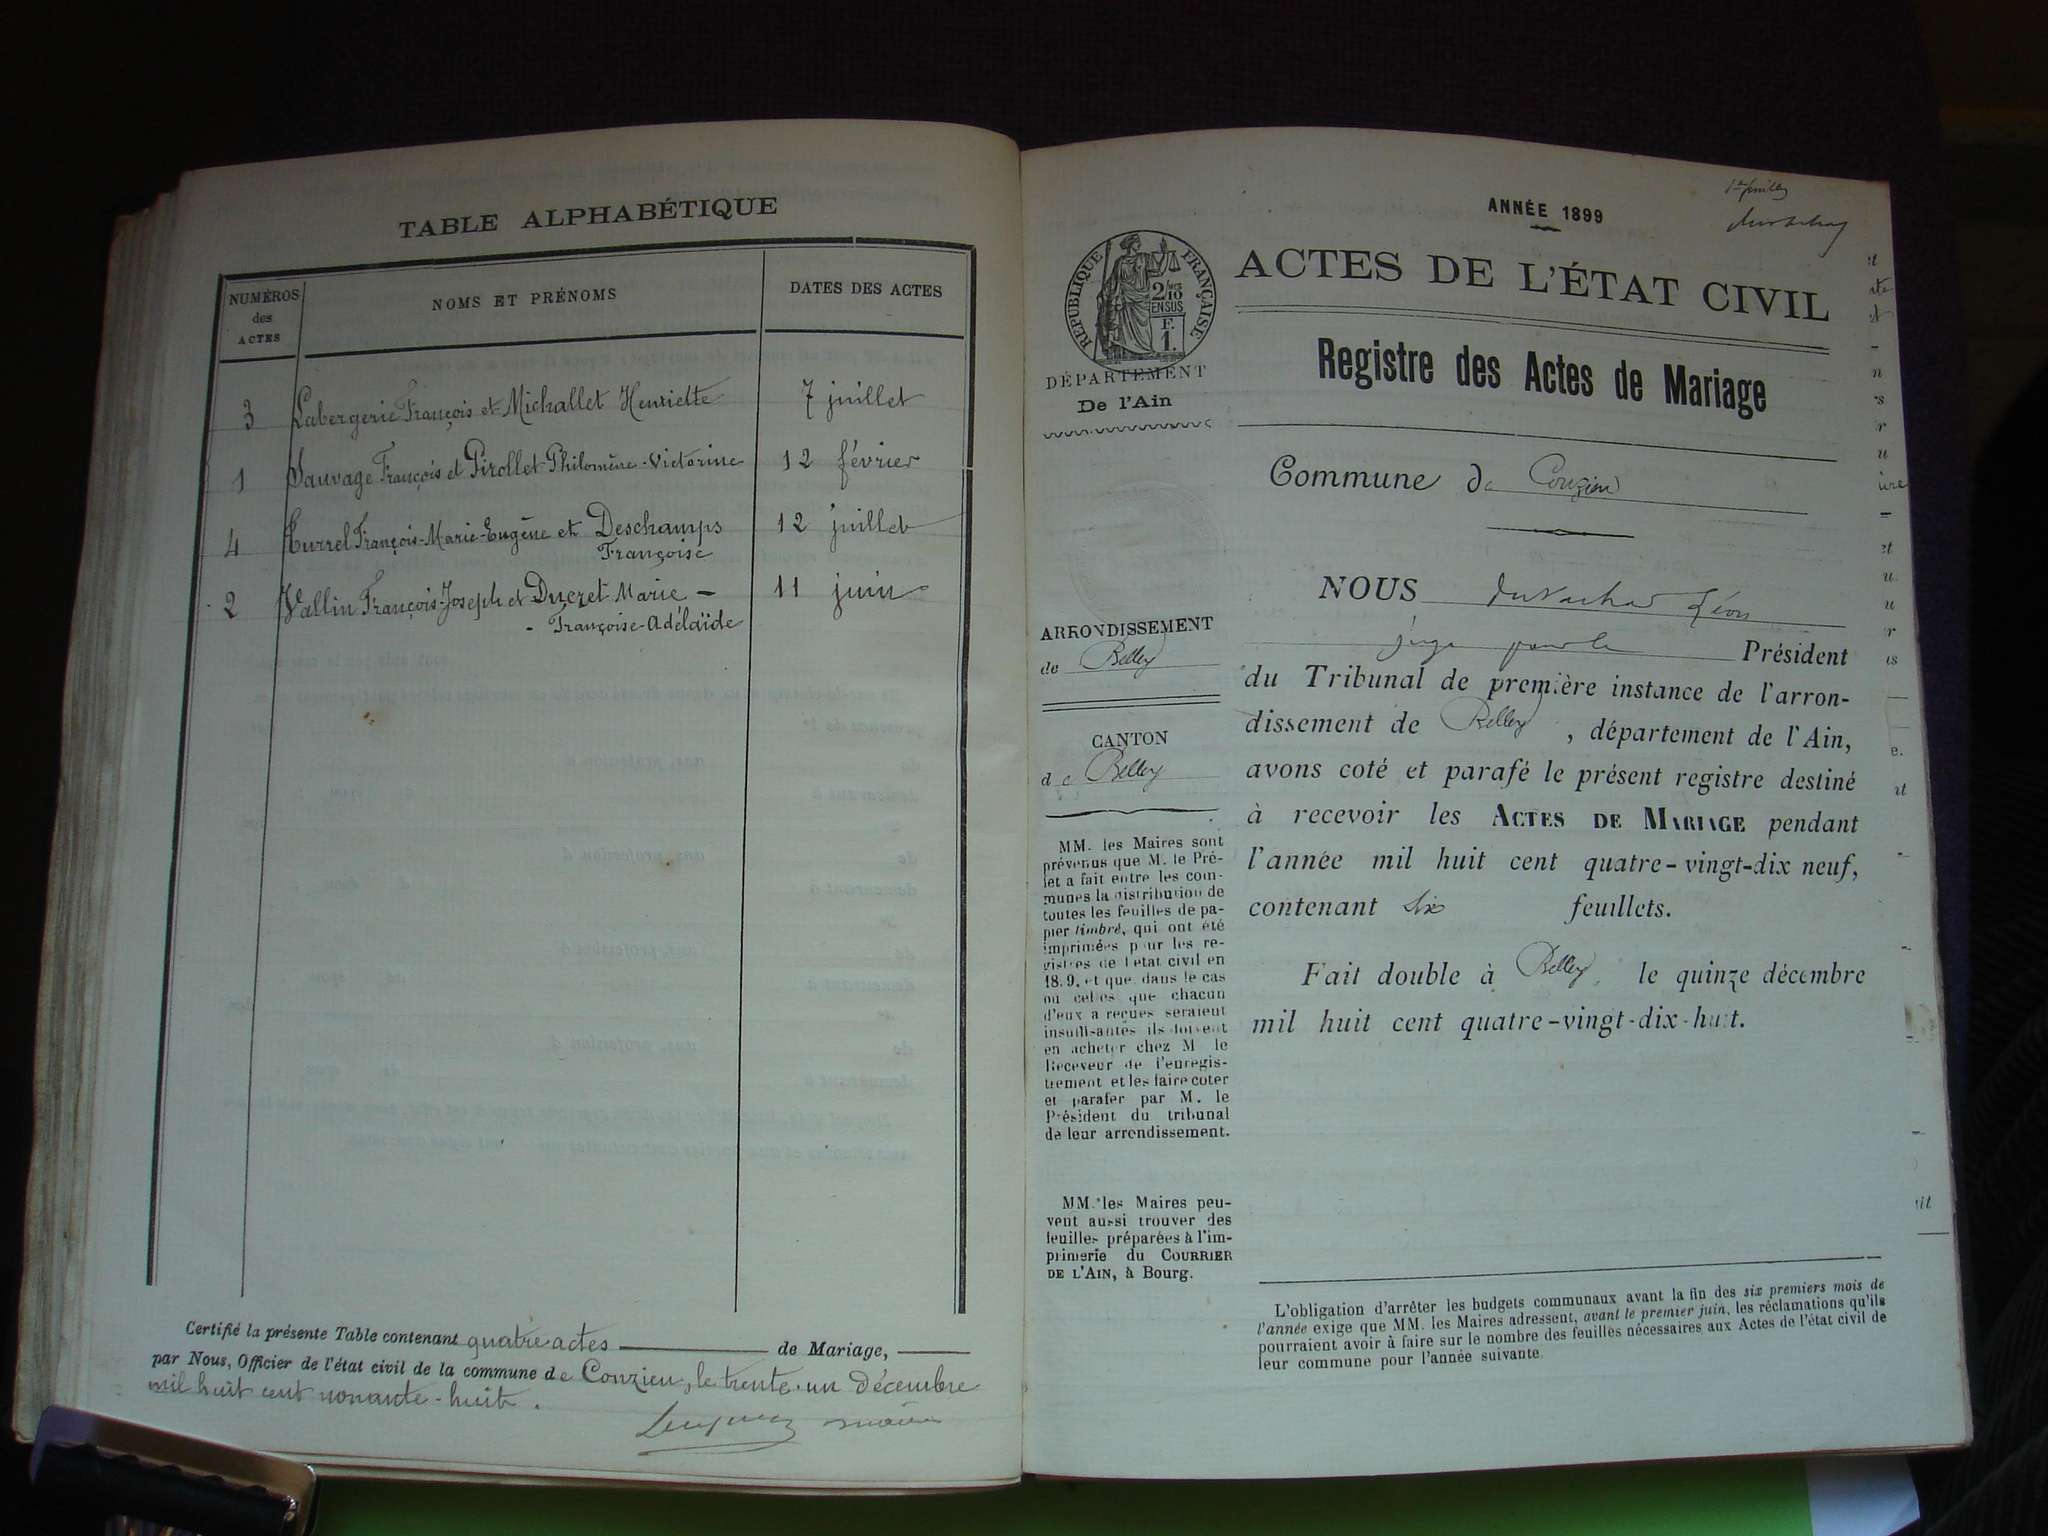 TABLE ALPHABÉTIQUE
NUMÉROS
des
ACTES
NOMS ET PRÉNOMS
DATES DES ACTES
3 Labergerie François et Michallet Henriette 7 juillet
1 Sauvage François et Pirollet Philomène-Victorine 12 février
4 Turrel François-Marie-Eugène et Deschamps 12 juillet
Françoise
2 Vallin François-Joseph et Ducret Marie - 11 juin
- Françoise-Adélaïde
Certifié la présente Table contenant quatre actes de Mariage,
par Nous, Officier de l'état civil de la commune de Conzieu, le trente-un décembre
mil huit cent nonante-huit.
maire
1er feuillet
ANNÉE 1899
ACTES DE L'ÉTAT CIVIL
RÉPUBLIQUE FRANÇAISE
2/10
EN SUS
F.
1.
DÉPARTEMENT
De l'Ain
Registre des Actes de Mariage
Commune de Conzieu
NOUS Léon
juge pour le Président
du Tribunal de première instance de l'arron-
dissement de Belley, département de l'Ain,
avons coté et parafé le présent registre destiné
à recevoir les ACTES DE MARIAGE pendant
l'année mil huit cent quatre-vingt-dix neuf,
contenant six feuillets.
Fait double à Belley, le quinze décembre
mil huit cent quatre-vingt-dix-huit.
ARRONDISSEMENT
de Belley
CANTON
de Belley
MM. les Maires sont
prévenus que M. le Pré-
fet a fait entre les com-
munes la distribution de
toutes les feuilles de pa-
pier timbré, qui ont été
imprimées pour les re-
gistres de l'état civil en
1899, et que dans le cas
où celles que chacun
d'eux a reçues seraient
insuffisantes ils doivent
en acheter chez M. le
Receveur de l'enregis-
trement et les faire coter
et parafer par M. le
Président du tribunal
de leur arrondissement.
MM. les Maires peu-
vent aussi trouver des
feuilles préparées à l'im-
primerie du COURRIER
DE L'AIN, à Bourg.
L'obligation d'arrêter les budgets communaux avant la fin des six premiers mois de
l'année exige que MM. les Maires adressent, avant le premier juin, les réclamations qu'ils
pourraient avoir à faire sur le nombre des feuilles nécessaires aux Actes de l'état civil de
leur commune pour l'année suivante.